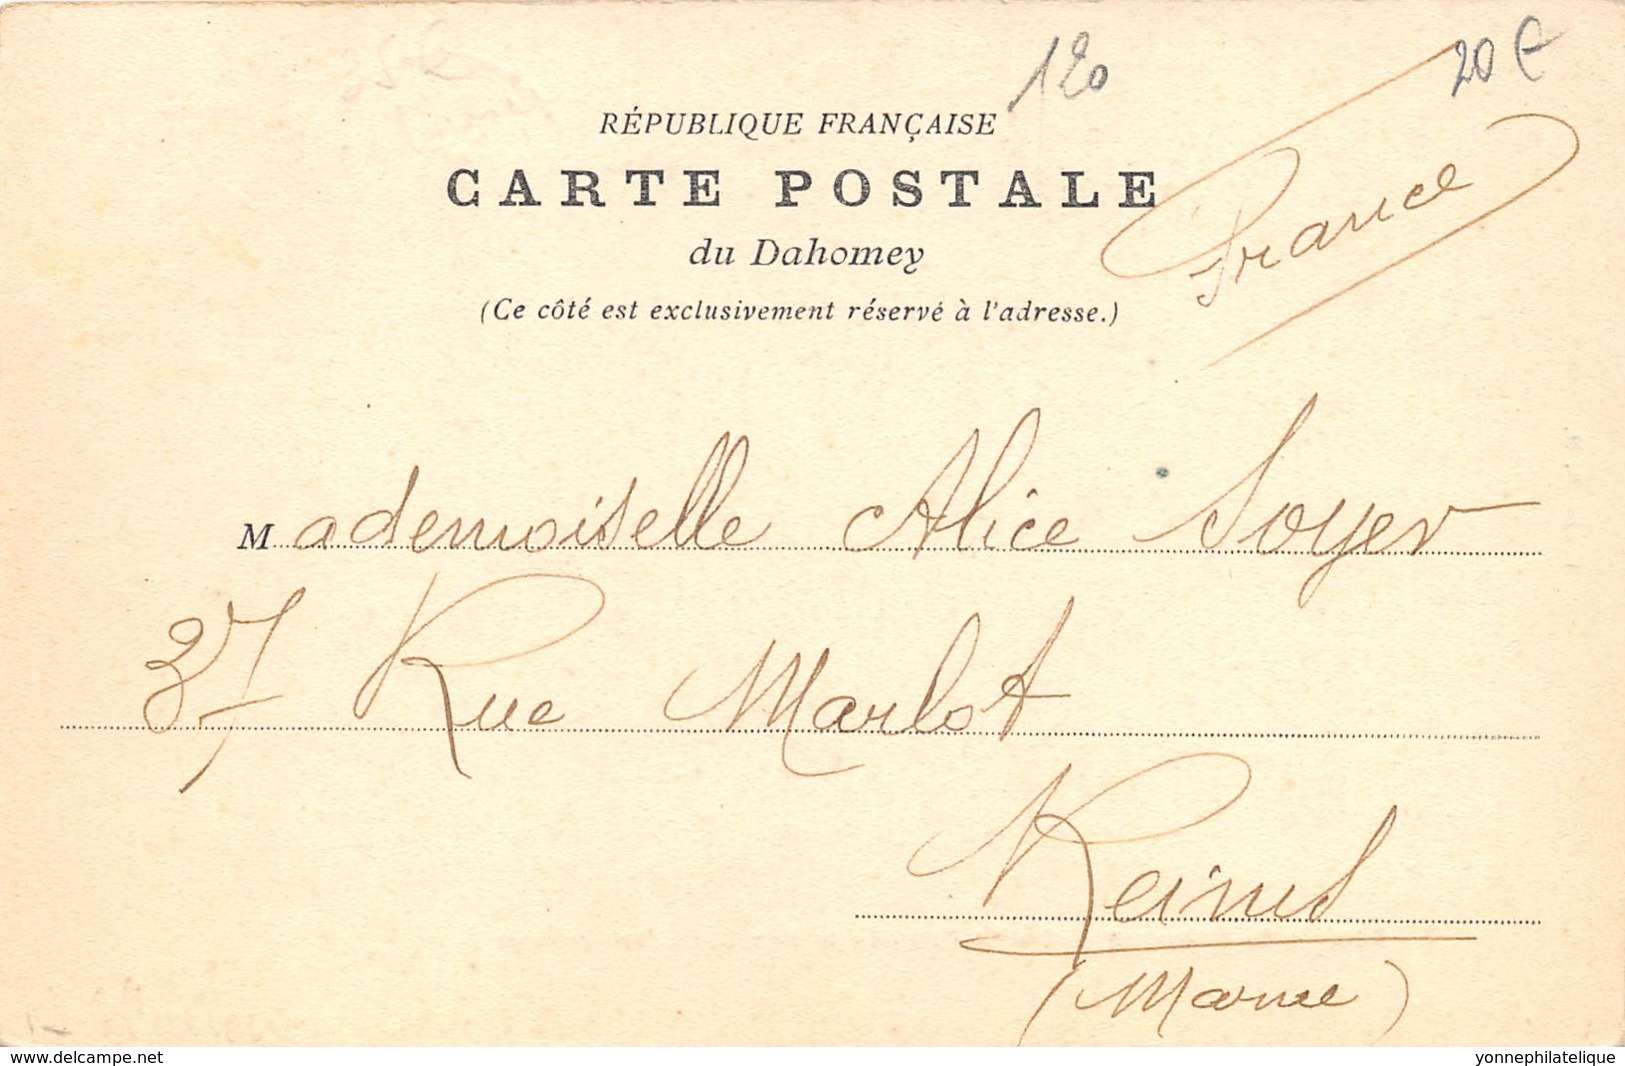 120
20 €
RÉPUBLIQUE FRANÇAISE
CARTE POSTALE
du Dahomey
(Ce côté est exclusivement réservé à l'adresse.)
France
Mademoiselle Alice Soyer
37 Rue Marlot
Reims
(Marne)
www.delcampe.net
yonnephilatelique